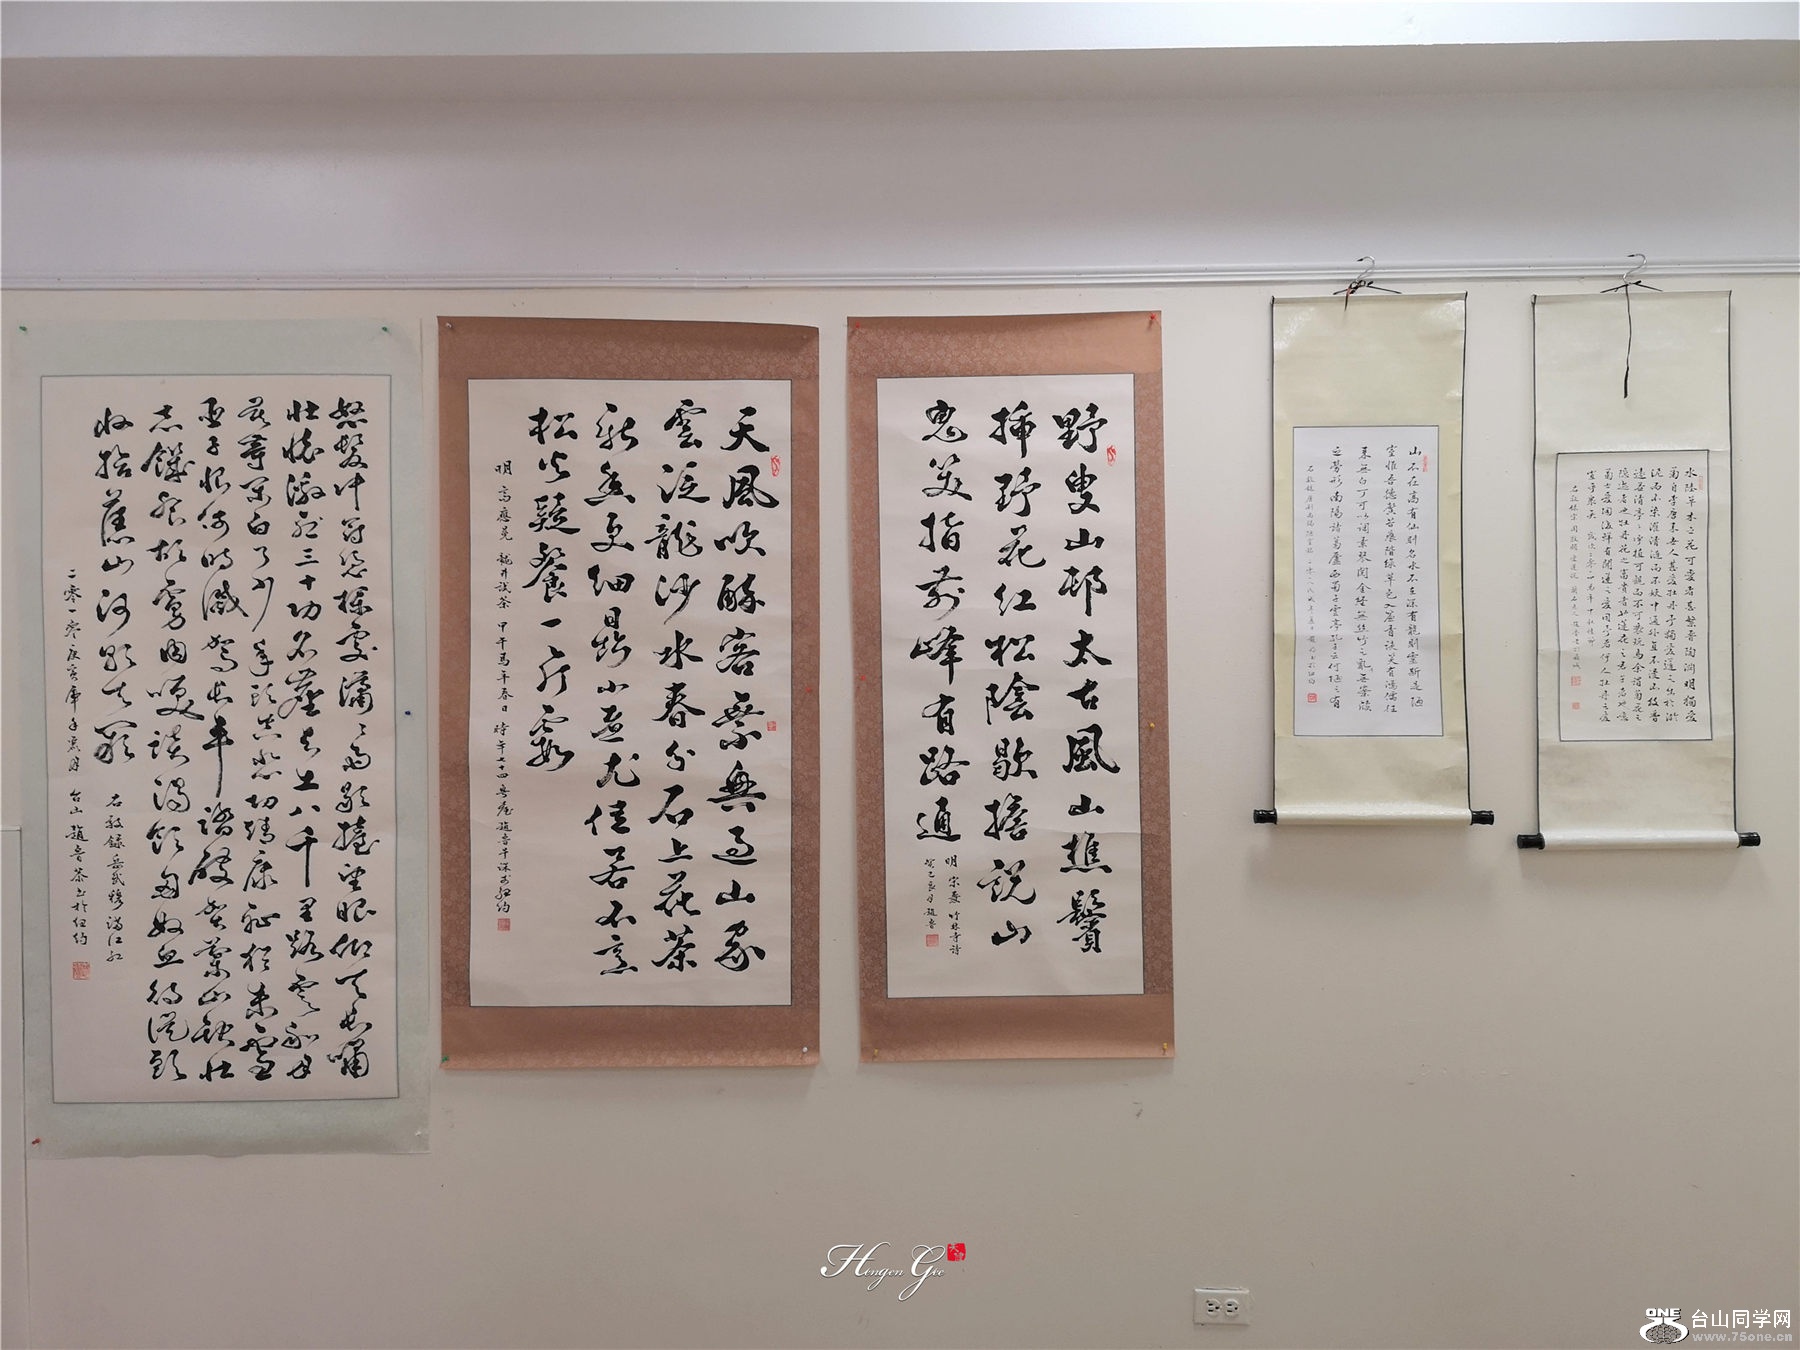 怒髮冲冠凭欄處瀟〻雨歇擡望眼仰天長嘯
壯懷激烈三十功名塵與土八千里路雲和月
莫等閑白了少年頭空悲切靖康耻猶未雪
臣子恨何時滅駕長車踏破賀蘭山缺壯
志饑餐胡虜肉笑談渴飲匈奴血待從頭
收拾舊山河朝天闕
右敬錄岳武穆滿江紅
二零一零庚寅虎年寒月 台山 趙魯 書於纽约
天風吹醉客乘興過山家
雲泛龍沙水春分石上花茶
新香更細鼎小煮尤佳若不烹
松火疑餐一片霞
明 高應冕 龍井試茶 甲午馬年春日 時年七十四
野叟山邨太古風山樵鬢
插野花紅松陰歇擔説山
鬼笑指前峰有路通
明 竹林寺詩
癸巳 趙魯
山不在高有仙則名水不在深有龍則靈斯是陋
室惟吾德馨苔痕階綠草色入簾青談笑有鴻儒往
來無白丁可以調素琴閱金經無絲竹之亂無案牘
之勞形南陽諸葛廬西蜀子雲亭孔子云何陋之有
水陸草木之花可愛者甚繁晉陶淵明獨愛
菊自李唐來世人甚愛牡丹予獨愛蓮之出於淤
泥而不染濯清漣而不妖中通外直不
遠益清亭〻淨植可觀而不可褻玩焉余謂菊花之
隱逸者也牡丹花之富貴者也蓮花之君子者也噫
菊之愛陶後鮮有聞蓮之愛同予者何人牡丹之愛
宜乎衆矣
Hengen Gee
ONE
台山同学网
www.75one.cn